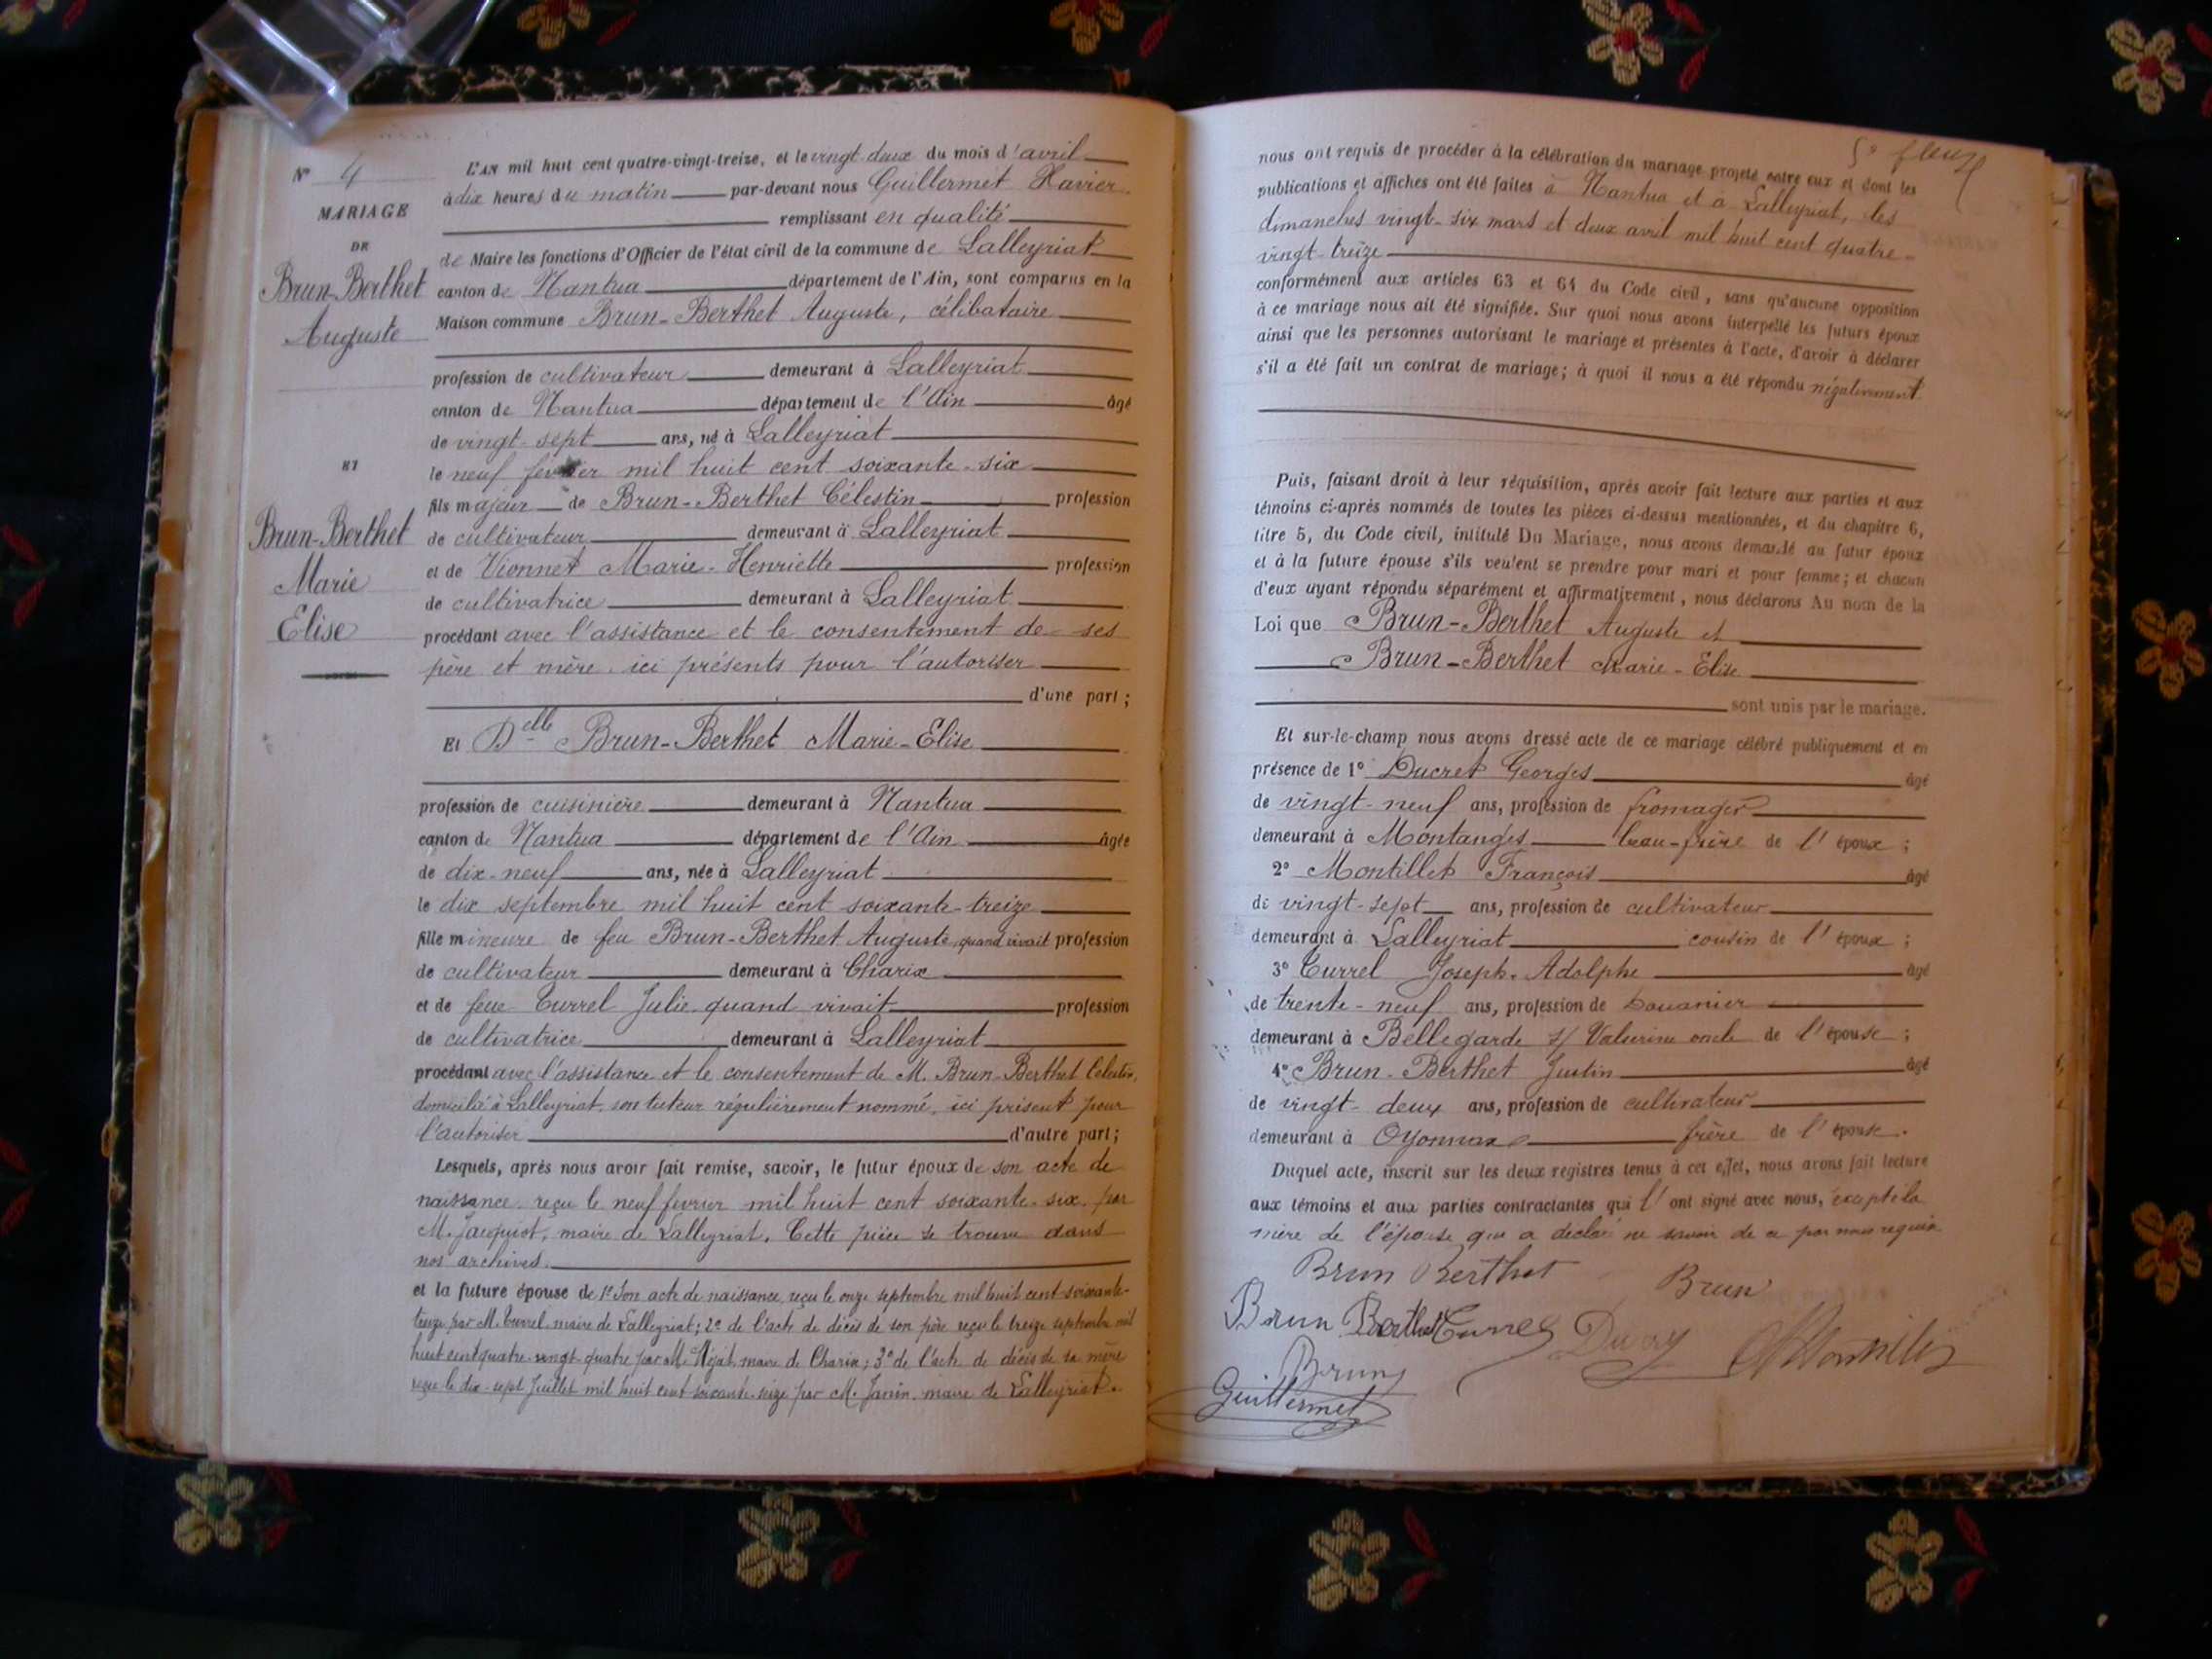 N° 4
MARIAGE
DE
Brun-Berthet
Auguste
ET
Brun-Berthet
Marie
Elise
L'AN mil huit cent quatre-vingt-treize, et le vingt-deux du mois d'avril
à dix heures du matin par-devant nous Guillermet Xavier
remplissant en qualité
de Maire les fonctions d'Officier de l'état civil de la commune de Lalleyriat
canton de Nantua département de l'Ain, sont comparus en la
Maison commune Brun-Berthet Auguste, célibataire
profession de cultivateur demeurant à Lalleyriat
canton de Nantua département de l'Ain âgé
de vingt-sept ans, né à Lalleyriat
le neuf février mil huit cent soixante-six
fils majeur de Brun-Berthet Célestin profession
de cultivateur demeurant à Lalleyriat
et de Vionnet Marie-Henriette profession
de cultivatrice demeurant à Lalleyriat
procédant avec l'assistance et le consentement de ses
père et mère ici présents pour l'autoriser
d'une part ;
Et Delle Brun-Berthet Marie-Elise
profession de cuisinière demeurant à Nantua
canton de Nantua département de l'Ain âgée
de dix-neuf ans, née à Lalleyriat
le dix septembre mil huit cent soixante-treize
fille mineure de feu Brun-Berthet Auguste, quand vivait profession
de cultivateur demeurant à Charix
et de feue Turrel Julie quand vivait profession
de cultivatrice demeurant à Lalleyriat
procédant avec l'assistance et le consentement de M. Brun-Berthet Célestin,
domicilié à Lalleyriat, son tuteur régulièrement nommé, ici présent pour
l'autoriser d'autre part ;
Lesquels, après nous avoir fait remise, savoir, le futur époux de son acte de
naissance reçu le neuf février mil huit cent soixante-six par
M. Jacquiot, maire de Lalleyriat. Cette pièce se trouve dans
nos archives.
et la future épouse de 1° Son acte de naissance, reçu le onze septembre mil huit cent soixante-
treize par M. Turrel maire de Lalleyriat ; 2° de l'acte de décès de son père reçu le treize septembre mil
huit cent quatre-vingt-quatre par M. maire de Charix ; 3° de l'acte de décès de sa mère
reçu le dix-sept Juillet mil huit cent soixante-seize par M. Janin maire de Lalleyriat.
nous ont requis de procéder à la célébration du mariage projeté entre eux et dont les
publications et affiches ont été faites à Nantua et à Lalleyriat, les
dimanches vingt-six mars et deux avril mil huit cent quatre-
vingt-treize
conformément aux articles 63 et 64 du Code civil, sans qu'aucune opposition
à ce mariage nous ait été signifiée. Sur quoi nous avons interpellé les futurs époux
ainsi que les personnes autorisant le mariage et présentes à l'acte, d'avoir à déclarer
s'il a été fait un contrat de mariage ; à quoi il nous a été répondu négativement
Puis, faisant droit à leur réquisition, après avoir fait lecture aux parties et aux
témoins ci-après nommés de toutes les pièces ci-dessus mentionnées, et du chapitre 6,
titre 5, du Code civil, intitulé Du Mariage, nous avons demandé au futur époux
et à la future épouse s'ils veulent se prendre pour mari et pour femme ; et chacun
d'eux ayant répondu séparément et affirmativement, nous déclarons Au nom de la
Loi que Brun-Berthet Auguste et
Brun-Berthet Marie-Elise
sont unis par le mariage.
Et sur-le-champ nous avons dressé acte de ce mariage célébré publiquement et en
présence de 1° Ducret Georges âgé
de vingt-neuf ans, profession de fromager
demeurant à Montanges beau-frère de l'époux ;
2° Montillet François âgé
de vingt-sept ans, profession de cultivateur
demeurant à Lalleyriat cousin de l'époux ;
3° Turrel Joseph-Adolphe âgé
de trente-neuf ans, profession de Douanier
demeurant à Bellegarde s/ Valserine oncle de l'épouse ;
4° Brun-Berthet Justin âgé
de vingt-deux ans, profession de cultivateur
demeurant à Oyonnax frère de l'épouse.
Duquel acte, inscrit sur les deux registres tenus à cet effet, nous avons fait lecture
aux témoins et aux parties contractantes qui l'ont signé avec nous, excepté la
mère de l'épouse qui a déclaré ne savoir de ce par nous requise
Brun Berthet Brun
Brun Berthet
Brun
Guillermet